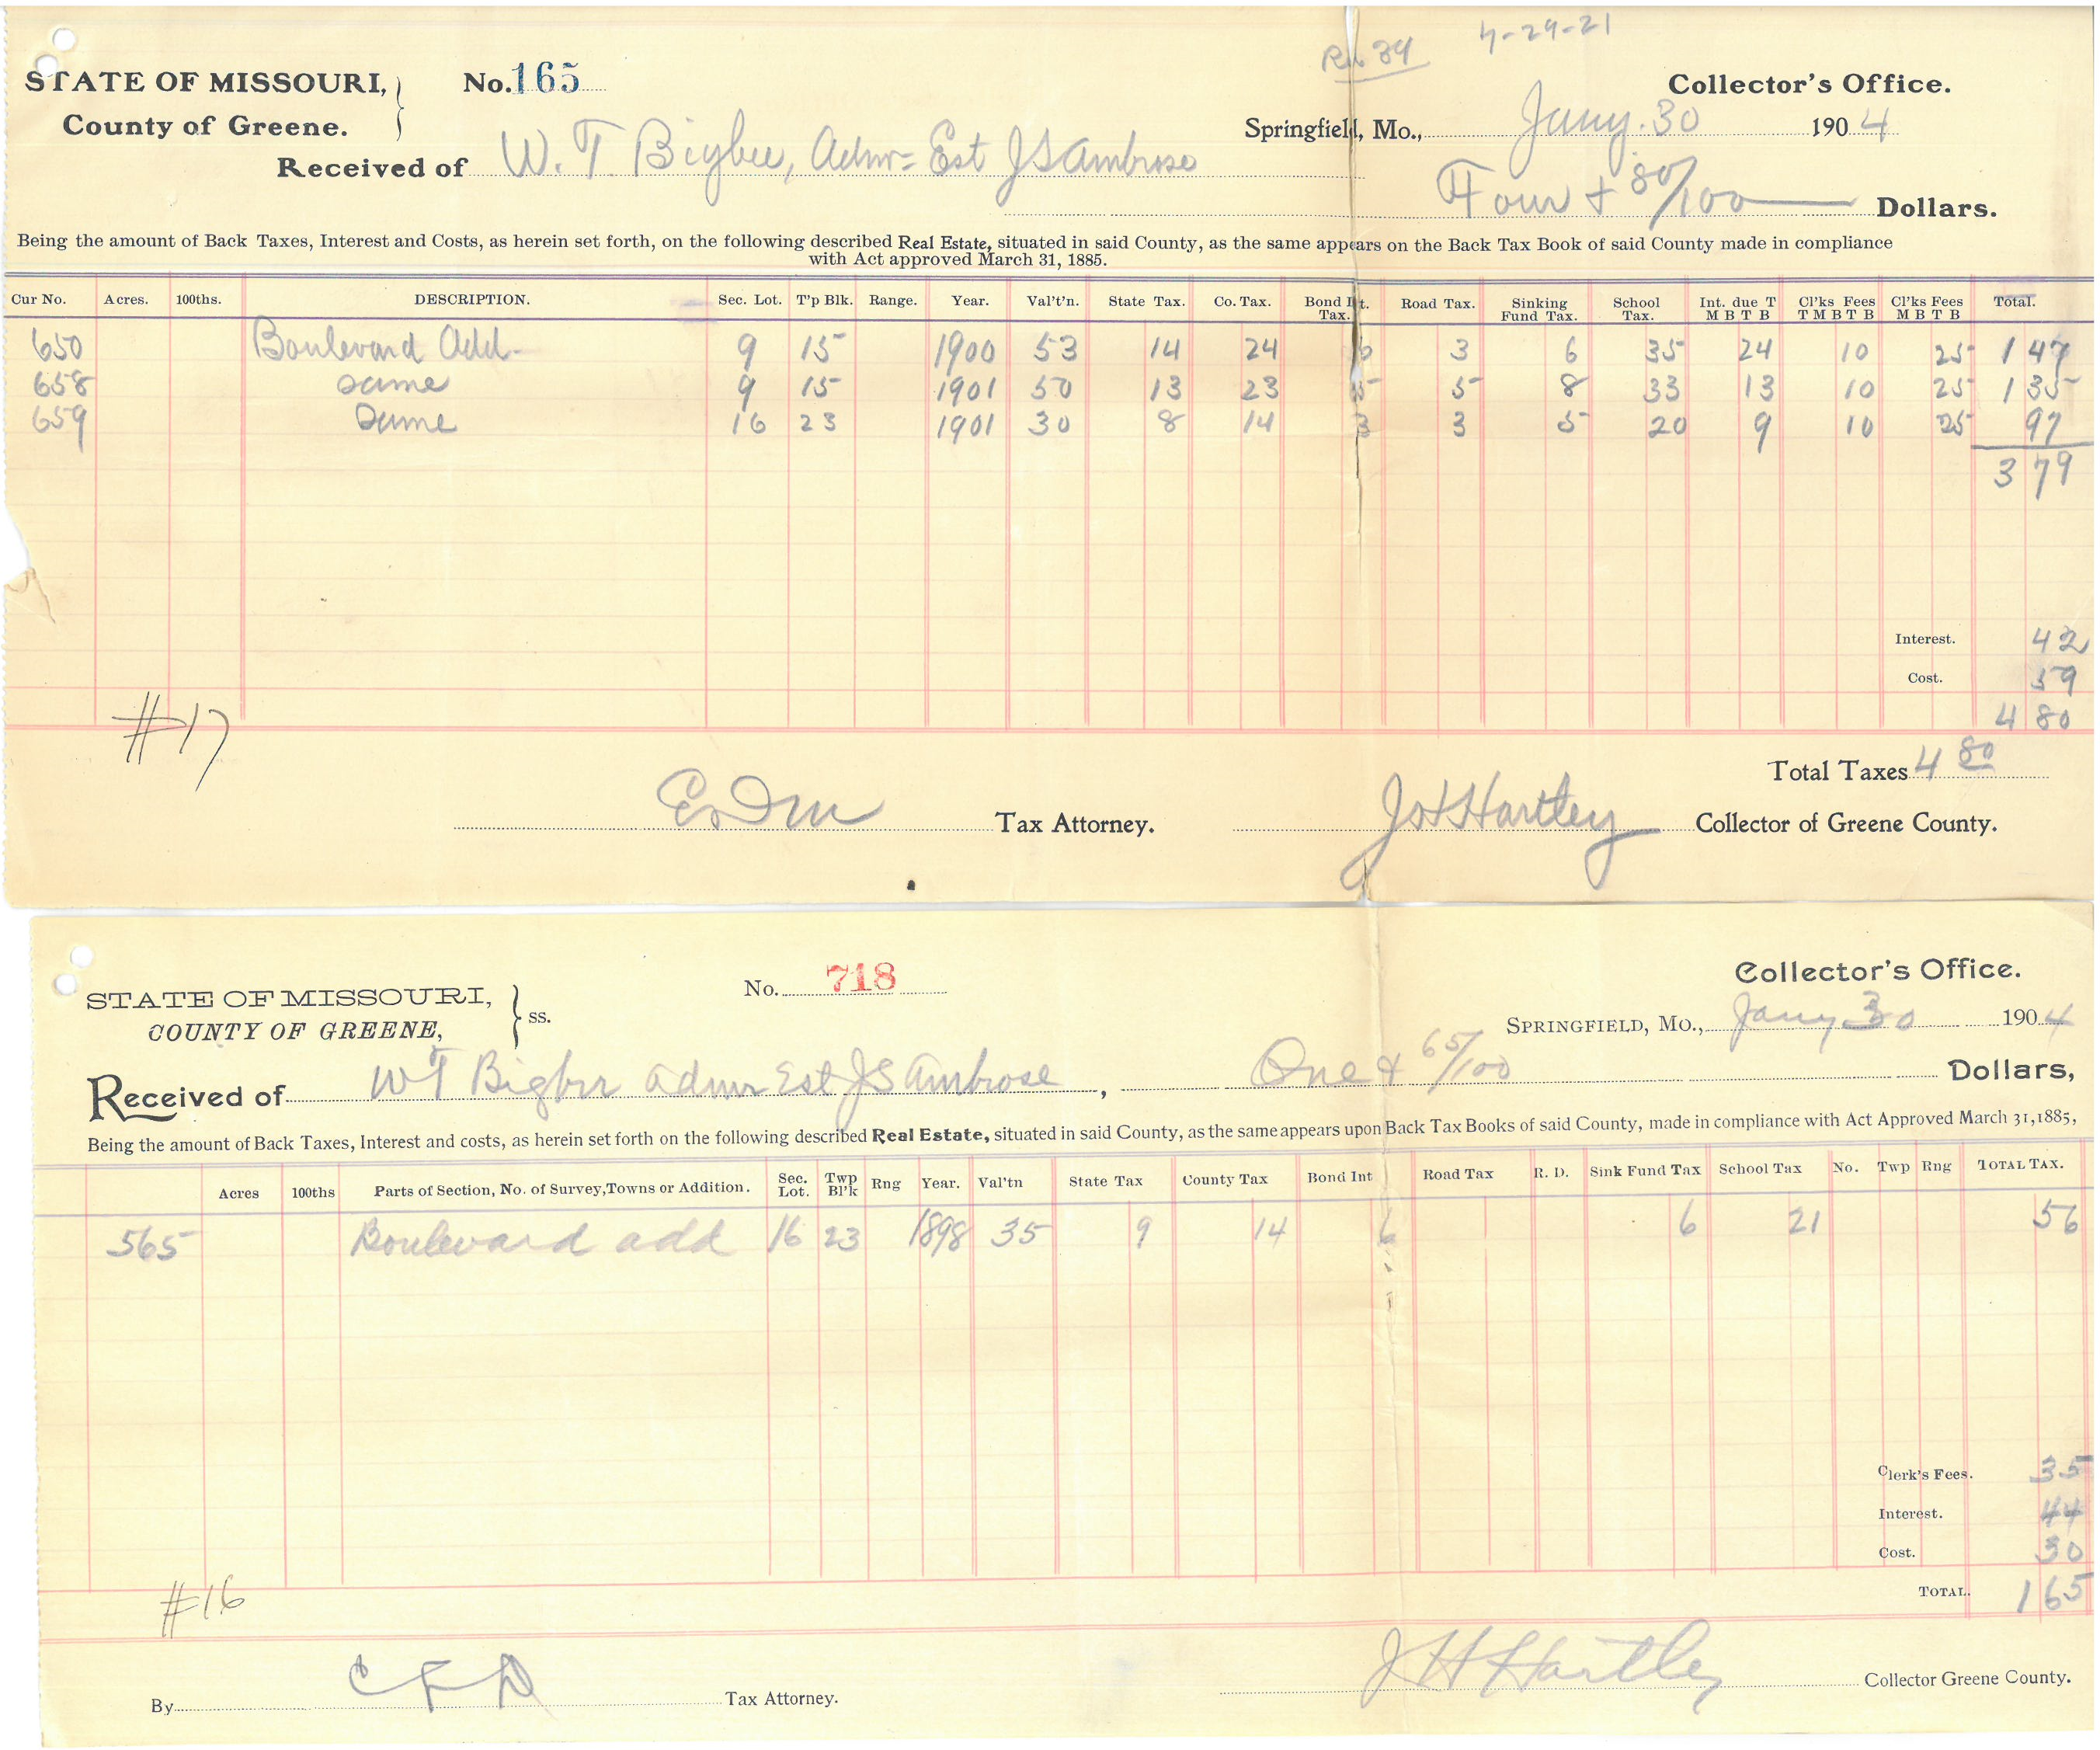 4-29-21
STATE OF MISSOURI, No. 165 Collector's Office.
County of Greene. Springfield, Mo., Jany. 30 1904
Received of W. T. Bigbee, Admr= Est J S Ambrose
Four + 80/100 Dollars.
Being the amount of Back Taxes, Interest and Costs, as herein set forth, on the following described Real Estate, situated in said County, as the same appears on the Back Tax Book of said County made in compliance
with Act approved March 31, 1885.
Cur No. Acres. 100ths. DESCRIPTION. Sec. Lot. T'p Blk. Range. Year. Val't'n. State Tax. Co. Tax. Bond Int. Tax. Road Tax. Sinking Fund Tax. School Tax. Int. due T M B T B Cl'ks Fees T M B T B Cl'ks Fees M B T B Total.
650 Boulevard Add- 9 15 1900 53 14 24 6 3 6 35 24 10 25 1 47
658 same 9 15 1901 50 13 23 5 5 8 33 13 10 25 1 35
659 Same 16 23 1901 30 8 14 3 3 5 20 9 10 25 97
3 79
Interest. 42
Cost. 59
4 80
#17
Total Taxes 4 80
Tax Attorney. J H Hartley Collector of Greene County.
No. 718 Collector's Office.
STATE OF MISSOURI, ss.
COUNTY OF GREENE, SPRINGFIELD, MO., Jany 30 1904
Received of W T Bigbee admr Est J S Ambrose, One & 65/100 Dollars,
Being the amount of Back Taxes, Interest and costs, as herein set forth on the following described Real Estate, situated in said County, as the same appears upon Back Tax Books of said County, made in compliance with Act Approved March 31, 1885,
Acres 100ths Parts of Section, No. of Survey, Towns or Addition. Sec. Lot. Twp Bl'k Rng Year. Val'tn State Tax County Tax Bond Int Road Tax R. D. Sink Fund Tax School Tax No. Twp Rng TOTAL TAX.
565 Boulevard add 16 23 1898 35 9 14 6 6 21 56
Clerk's Fees. 35
Interest. 44
Cost. 30
TOTAL. 1 65
#16
By C F D Tax Attorney. J H Hartley Collector Greene County.